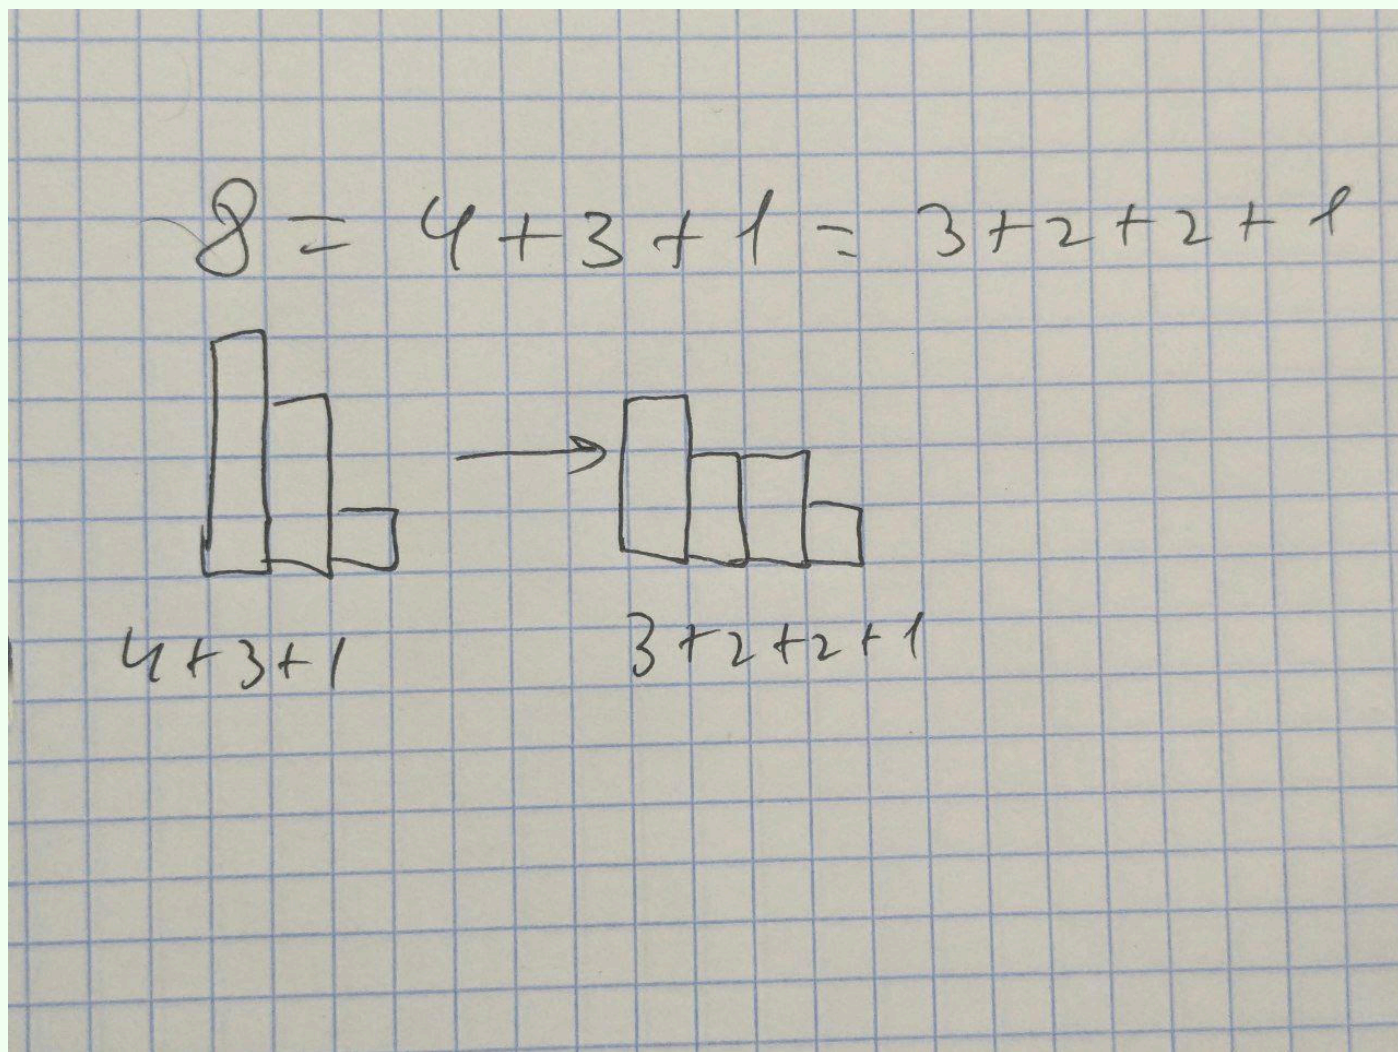 8 = 4 + 3 + 1 = 3 + 2 + 2 + 1
4 + 3 + 1
3 + 2 + 2 + 1